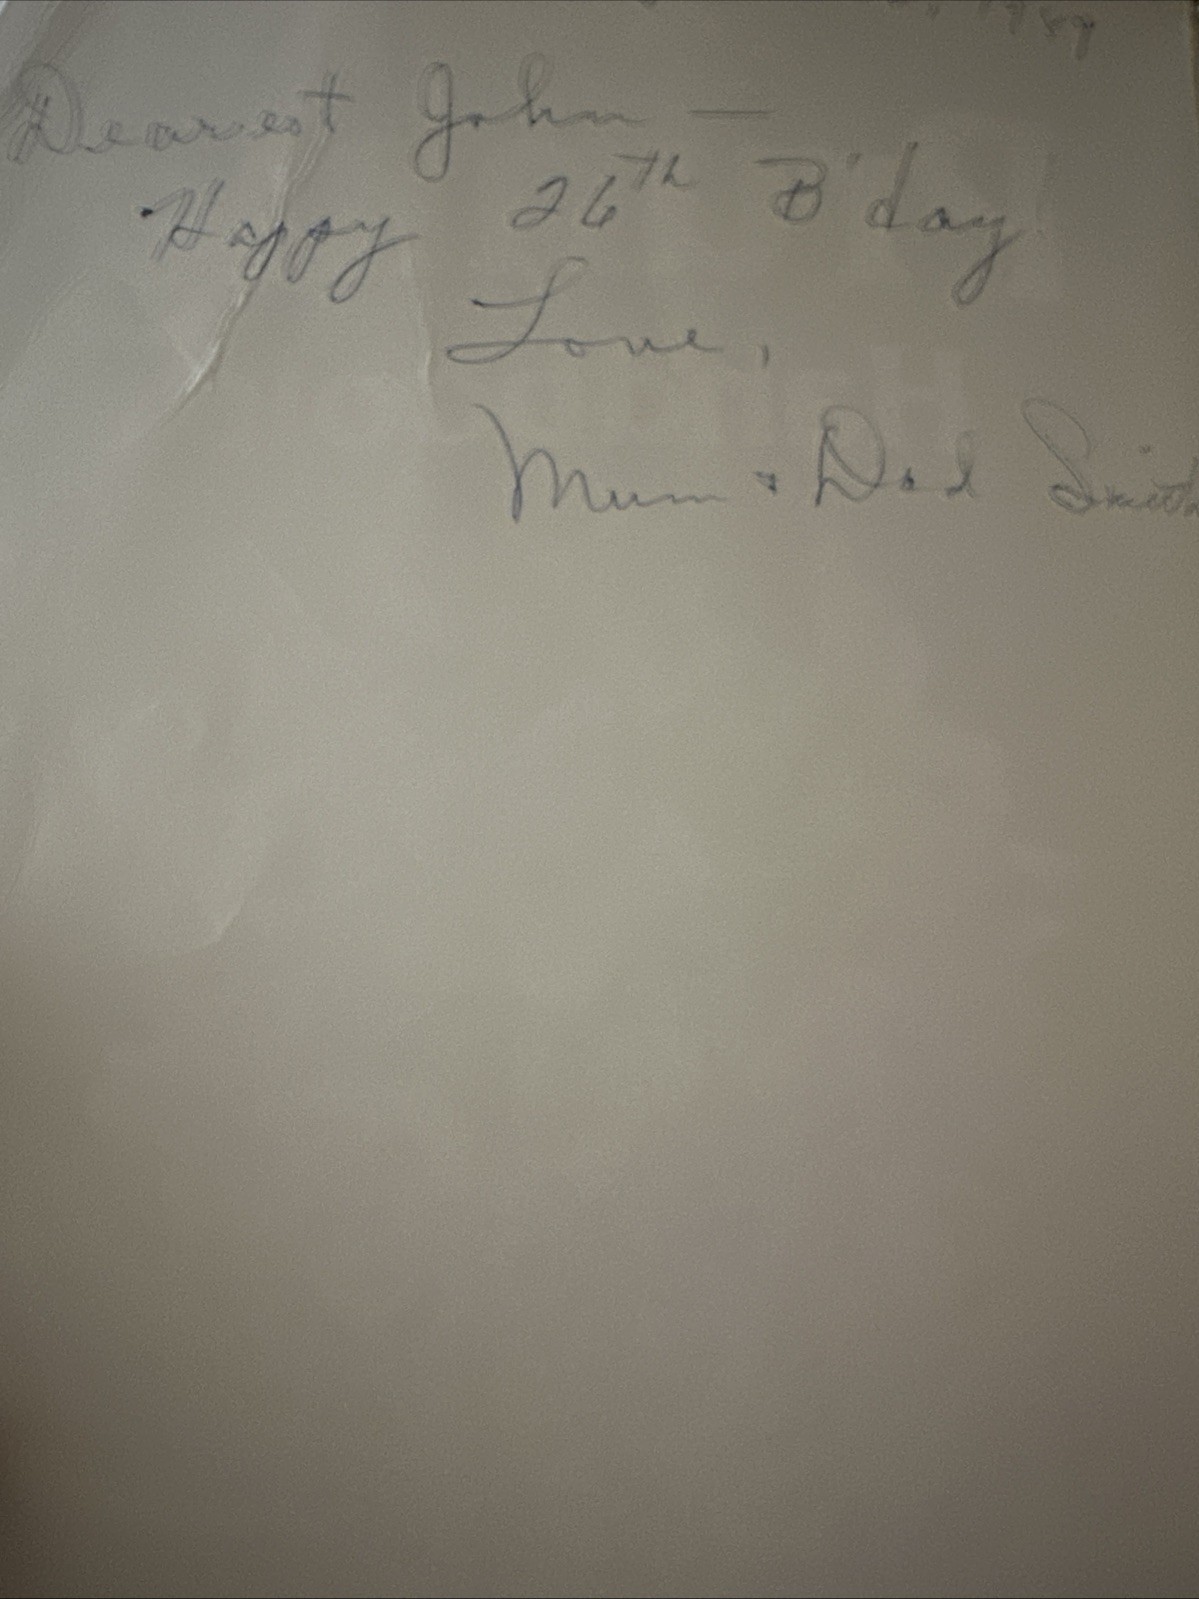 1989
Dearest John —
Happy 26th B'day
Love,
Mum + Dad Smith